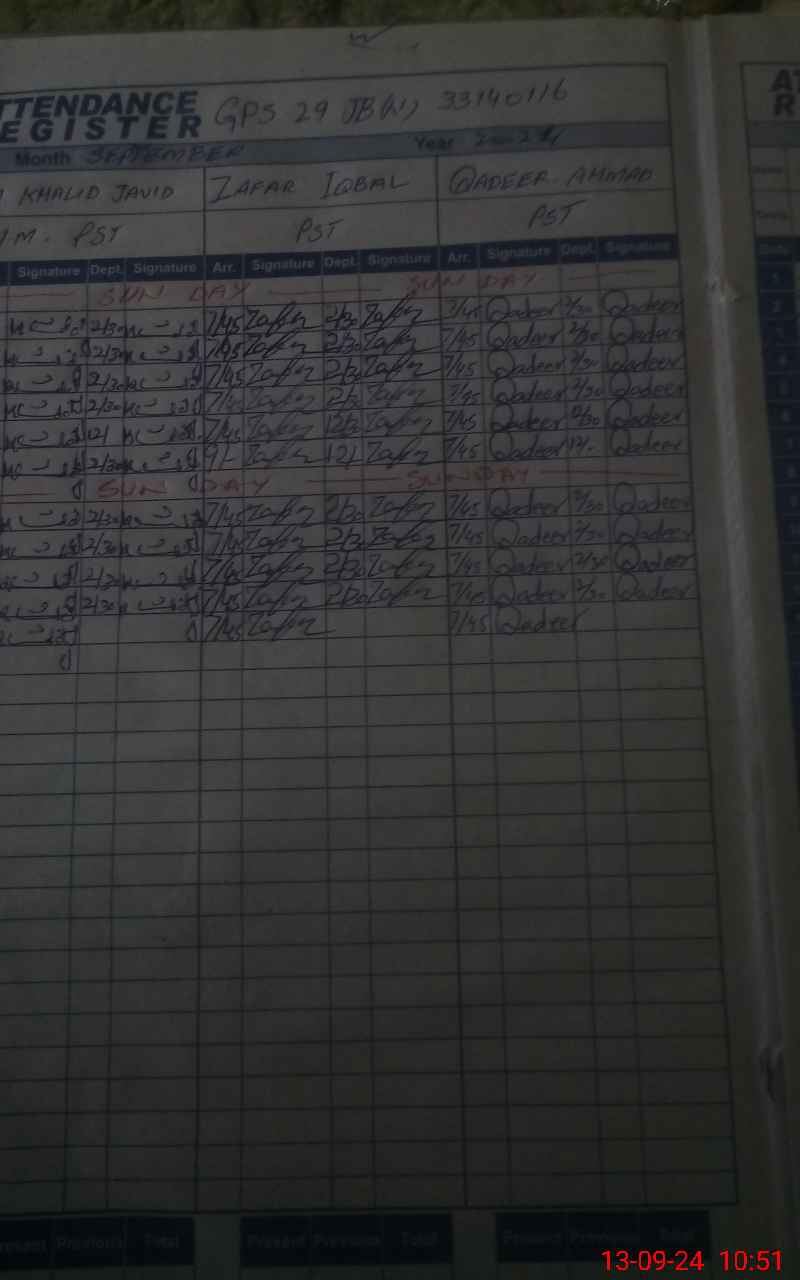 TTENDANCE GPS 29 JB(W) 33140116 AT
EGISTER R
Month SEPTEMBER Year 2024
KHALID JAVID ZAFAR IQBAL QADEER AHMAD
PST PST PST
Signature Dept. Signature Arr. Signature Dept. Signature Arr. Signature Dept. Signature Date
SUN DAY SUN DAY 1
2/30 7/45 Zafar 2/30 Zafar 7/45 Qadeer 2/30 Qadeer 2
2/30 7/45 Zafar 2/30 Zafar 7/45 Qadeer 2/30 Qadeer 3
2/30 7/45 Zafar 2/30 Zafar 7/45 Qadeer 2/30 Qadeer 4
2/30 7/45 Zafar 2/30 Zafar 7/45 Qadeer 2/30 Qadeer 5
12/ 7/45 Zafar Zafar 7/45 Qadeer Qadeer 6
2/30 9/- Zafar 12/ Zafar 7/45 Qadeer 12/- Qadeer 7
SUN DAY SUNDAY 8
2/30 7/45 Zafar 2/30 Zafar 7/45 Qadeer 2/30 Qadeer
2/30 7/45 Zafar 2/30 Zafar 7/45 Qadeer 2/30 Qadeer
2/30 7/45 Zafar 2/30 Zafar 7/45 Qadeer 2/30 Qadeer
2/30 7/45 Zafar 2/30 Zafar 7/45 Qadeer 2/30 Qadeer
7/45 Zafar 7/45 Qadeer
resent Previous Total Present Previous Total Present Previous Total
13-09-24 10:51